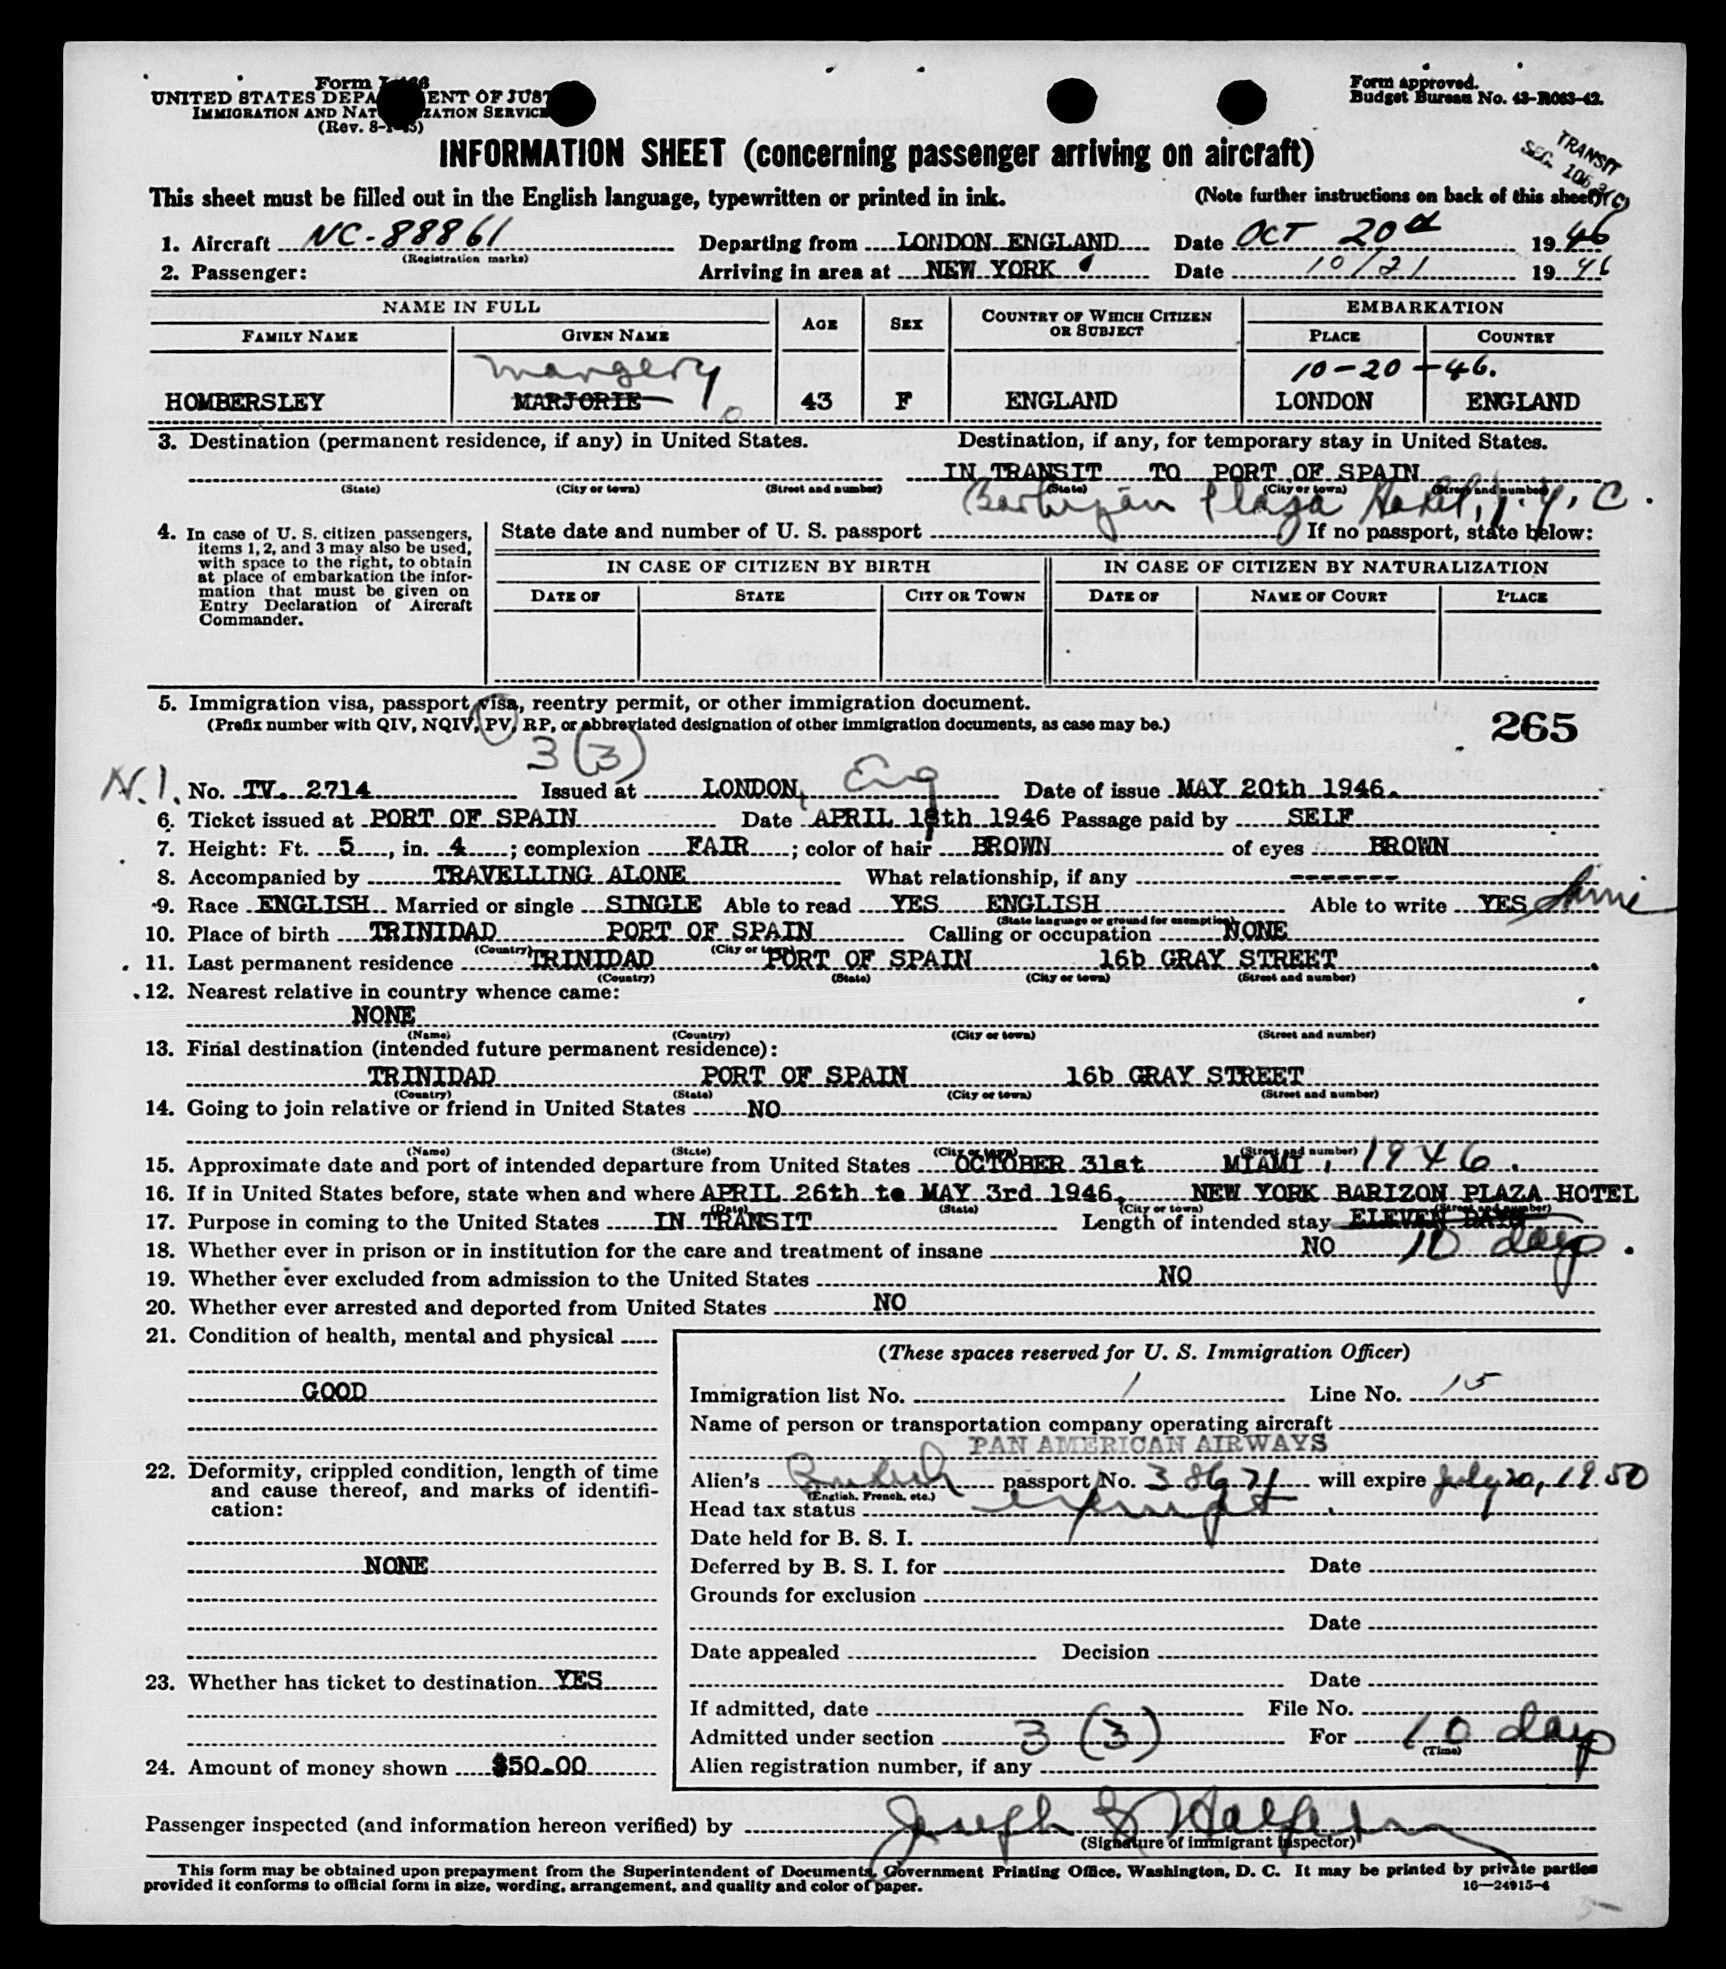 Form I-466
UNITED STATES DEPARTMENT OF JUSTICE
IMMIGRATION AND NATURALIZATION SERVICE
(Rev. 8-1-45)
Form approved.
Budget Bureau No. 43-R063-42.
INFORMATION SHEET (concerning passenger arriving on aircraft)
TRANSIT
SEC. 106.3(c)
This sheet must be filled out in the English language, typewritten or printed in ink. (Note further instructions on back of this sheet)
1. Aircraft NC-88861 Departing from LONDON ENGLAND Date OCT 20th 1946
(Registration marks)
2. Passenger: Arriving in area at NEW YORK Date 10/21 1946
NAME IN FULL AGE SEX COUNTRY OF WHICH CITIZEN OR SUBJECT EMBARKATION
FAMILY NAME GIVEN NAME PLACE COUNTRY
Margery 10-20-46.
HOMBERSLEY MARJORIE 43 F ENGLAND LONDON ENGLAND
3. Destination (permanent residence, if any) in United States. Destination, if any, for temporary stay in United States.
IN TRANSIT TO PORT OF SPAIN
(State) (City or town) (Street and number) (State) (City or town) (Street and number)
Barbizon Plaza Hotel, N.Y.C.
4. In case of U. S. citizen passengers, items 1, 2, and 3 may also be used, with space to the right, to obtain at place of embarkation the information that must be given on Entry Declaration of Aircraft Commander.
State date and number of U. S. passport If no passport, state below:
IN CASE OF CITIZEN BY BIRTH IN CASE OF CITIZEN BY NATURALIZATION
DATE OF STATE CITY OR TOWN DATE OF NAME OF COURT PLACE
5. Immigration visa, passport visa, reentry permit, or other immigration document.
(Prefix number with QIV, NQIV, PV, RP, or abbreviated designation of other immigration documents, as case may be.)
265
3(3)
N.I. No. TV. 2714 Issued at LONDON, Eng Date of issue MAY 20th 1946.
6. Ticket issued at PORT OF SPAIN Date APRIL 18th 1946 Passage paid by SELF
7. Height: Ft. 5, in. 4; complexion FAIR; color of hair BROWN of eyes BROWN
8. Accompanied by TRAVELLING ALONE What relationship, if any -------
9. Race ENGLISH Married or single SINGLE Able to read YES ENGLISH Able to write YES Same
(State language or ground for exemption)
10. Place of birth TRINIDAD PORT OF SPAIN Calling or occupation NONE
(Country) (City or town)
11. Last permanent residence TRINIDAD PORT OF SPAIN 16b GRAY STREET
(Country) (State) (City or town) (Street and number)
12. Nearest relative in country whence came:
NONE
(Name) (Country) (City or town) (Street and number)
13. Final destination (intended future permanent residence):
TRINIDAD PORT OF SPAIN 16b GRAY STREET
(Country) (State) (City or town) (Street and number)
14. Going to join relative or friend in United States NO
(Name) (State) (City or town) (Street and number)
15. Approximate date and port of intended departure from United States OCTOBER 31st MIAMI, 1946.
16. If in United States before, state when and where APRIL 26th to MAY 3rd 1946, NEW YORK BARIZON PLAZA HOTEL
(Date) (State) (City or town) (Street and number)
17. Purpose in coming to the United States IN TRANSIT Length of intended stay ELEVEN DAYS
18. Whether ever in prison or in institution for the care and treatment of insane NO 10 days.
19. Whether ever excluded from admission to the United States NO
20. Whether ever arrested and deported from United States NO
21. Condition of health, mental and physical
GOOD
22. Deformity, crippled condition, length of time and cause thereof, and marks of identification:
NONE
23. Whether has ticket to destination YES
24. Amount of money shown $50.00
(These spaces reserved for U. S. Immigration Officer)
Immigration list No. 1 Line No. 15
Name of person or transportation company operating aircraft
PAN AMERICAN AIRWAYS
Alien's British passport No. 38671 will expire July 20, 1950
(English, French, etc.)
Head tax status exempt
Date held for B. S. I.
Deferred by B. S. I. for Date
Grounds for exclusion
Date
Date appealed Decision
Date
If admitted, date File No.
Admitted under section 3(3) For 10 days
(Time)
Alien registration number, if any
Passenger inspected (and information hereon verified) by Joseph
(Signature of immigrant inspector)
This form may be obtained upon prepayment from the Superintendent of Documents, Government Printing Office, Washington, D. C. It may be printed by private parties
provided it conforms to official form in size, wording, arrangement, and quality and color of paper. 16—24915-4